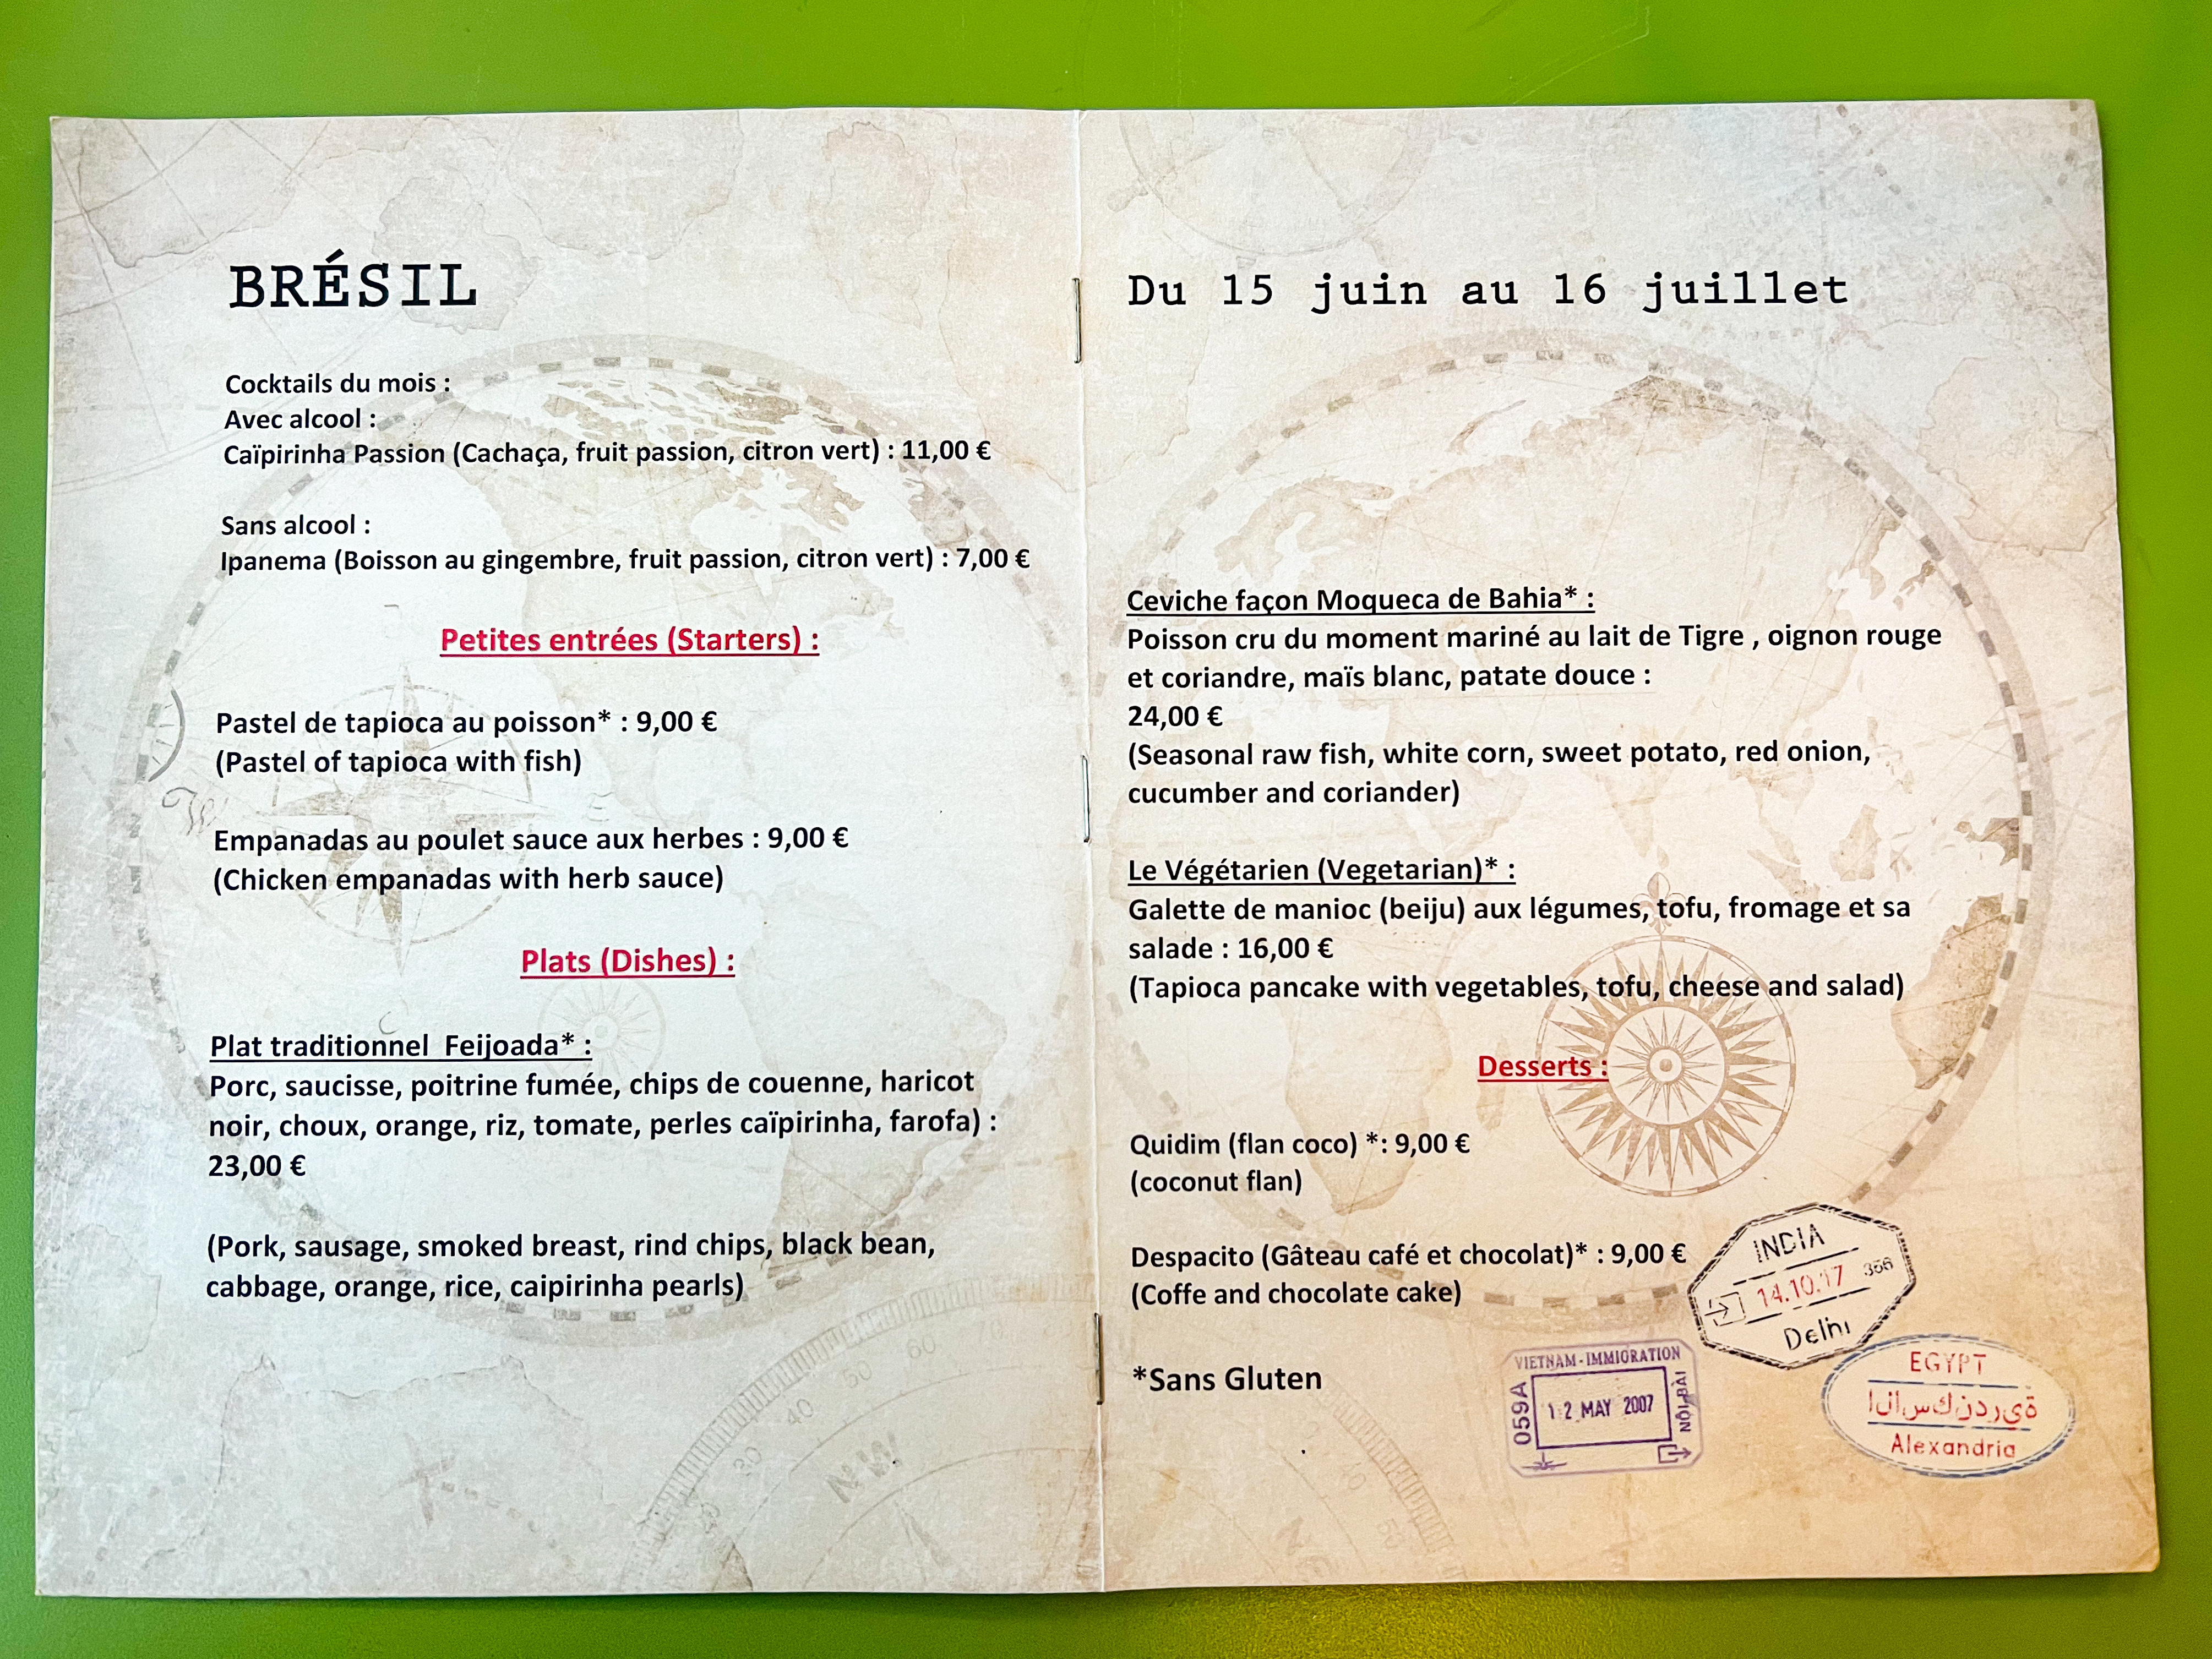 BRÉSIL
Cocktails du mois :
Avec alcool :
Caïpirinha Passion (Cachaça, fruit passion, citron vert) : 11,00 €
Sans alcool :
Ipanema (Boisson au gingembre, fruit passion, citron vert) : 7,00 €
Petites entrées (Starters) :
Pastel de tapioca au poisson* : 9,00 €
(Pastel of tapioca with fish)
Empanadas au poulet sauce aux herbes : 9,00 €
(Chicken empanadas with herb sauce)
Plats (Dishes) :
Plat traditionnel Feijoada* :
Porc, saucisse, poitrine fumée, chips de couenne, haricot
noir, choux, orange, riz, tomate, perles caïpirinha, farofa) :
23,00 €
(Pork, sausage, smoked breast, rind chips, black bean,
cabbage, orange, rice, caipirinha pearls)
Du 15 juin au 16 juillet
Ceviche façon Moqueca de Bahia* :
Poisson cru du moment mariné au lait de Tigre , oignon rouge
et coriandre, maïs blanc, patate douce :
24,00 €
(Seasonal raw fish, white corn, sweet potato, red onion,
cucumber and coriander)
Le Végétarien (Vegetarian)* :
Galette de manioc (beiju) aux légumes, tofu, fromage et sa
salade : 16,00 €
(Tapioca pancake with vegetables, tofu, cheese and salad)
Desserts :
Quidim (flan coco) *: 9,00 €
(coconut flan)
Despacito (Gâteau café et chocolat)* : 9,00 €
(Coffe and chocolate cake)
*Sans Gluten
INDIA
14.10.17 366
Delhi
VIETNAM-IMMIGRATION
059A
12 MAY 2007
NỘI BÀI
EGYPT
ا ل ا س ك ن د ر ي ة
Alexandria
40
50
60
30
NW